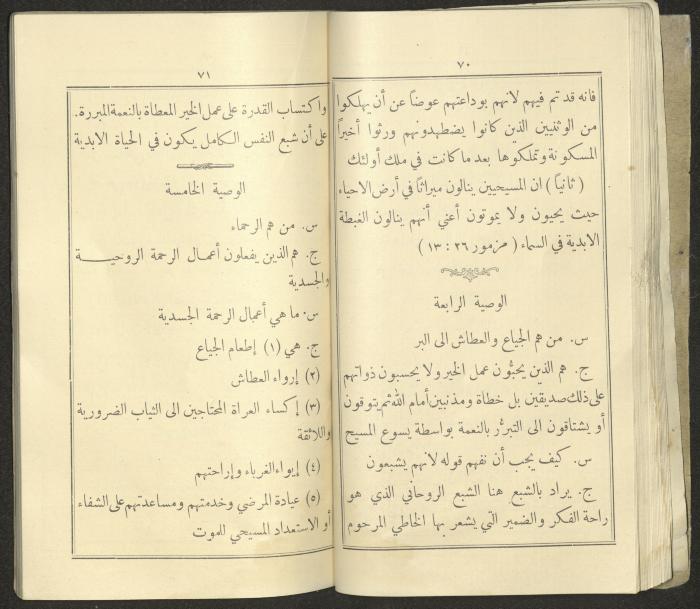 ٧٠
فانه قد تم فيهم لانهم بوداعتهم عوضاً عن أن يهلكوا
من الوثنيين الذين كانوا يضطهدونهم ورثوا أخيراً
المسكونة وتملكوها بعد ما كانت في ملك أولئك
( ثانياً ) ان المسيحيين ينالون ميراثاً في أرض الاحياء
حيث يحيون ولا يموتون أعني أنهم ينالون الغبطة
الابدية في السماء ( مزمور ٢٦ : ١٣ )
الوصية الرابعة
س. من هم الجياع والعطاش الى البر
ج. هم الذين يحبُّون عمل الخير ولا يحسبون ذواتهم
على ذلك صديقين بل خطاة ومذنبين أمام الله ثم يتوقون
أو يشتاقون الى التبرُّر بالنعمة بواسطة يسوع المسيح
س. كيف يجب أن نفهم قوله لانهم يشبعون
ج. يراد بالشبع هنا الشبع الروحاني الذي هو
راحة الفكر والضمير التي يشعر بها الخاطي المرحوم
٧١
واكتساب القدرة على عمل الخير المعطاة بالنعمة المبررة.
على أن شبع النفس الكامل يكون في الحياة الابدية
الوصية الخامسة
س. من هم الرحماء
ج. هم الذين يفعلون أعمال الرحمة الروحية
والجسدية
س. ما هي أعمال الرحمة الجسدية
ج. هي (١) إطعام الجياع
(٢) إرواء العطاش
(٣) إكساء العراة المحتاجين الى الثياب الضرورية
واللائقة
(٤) إيواء الغرباء وإراحتهم
(٥) عيادة المرضي وخدمتهم ومساعدتهم على الشفاء
أو الاستعداد المسيحي للموت